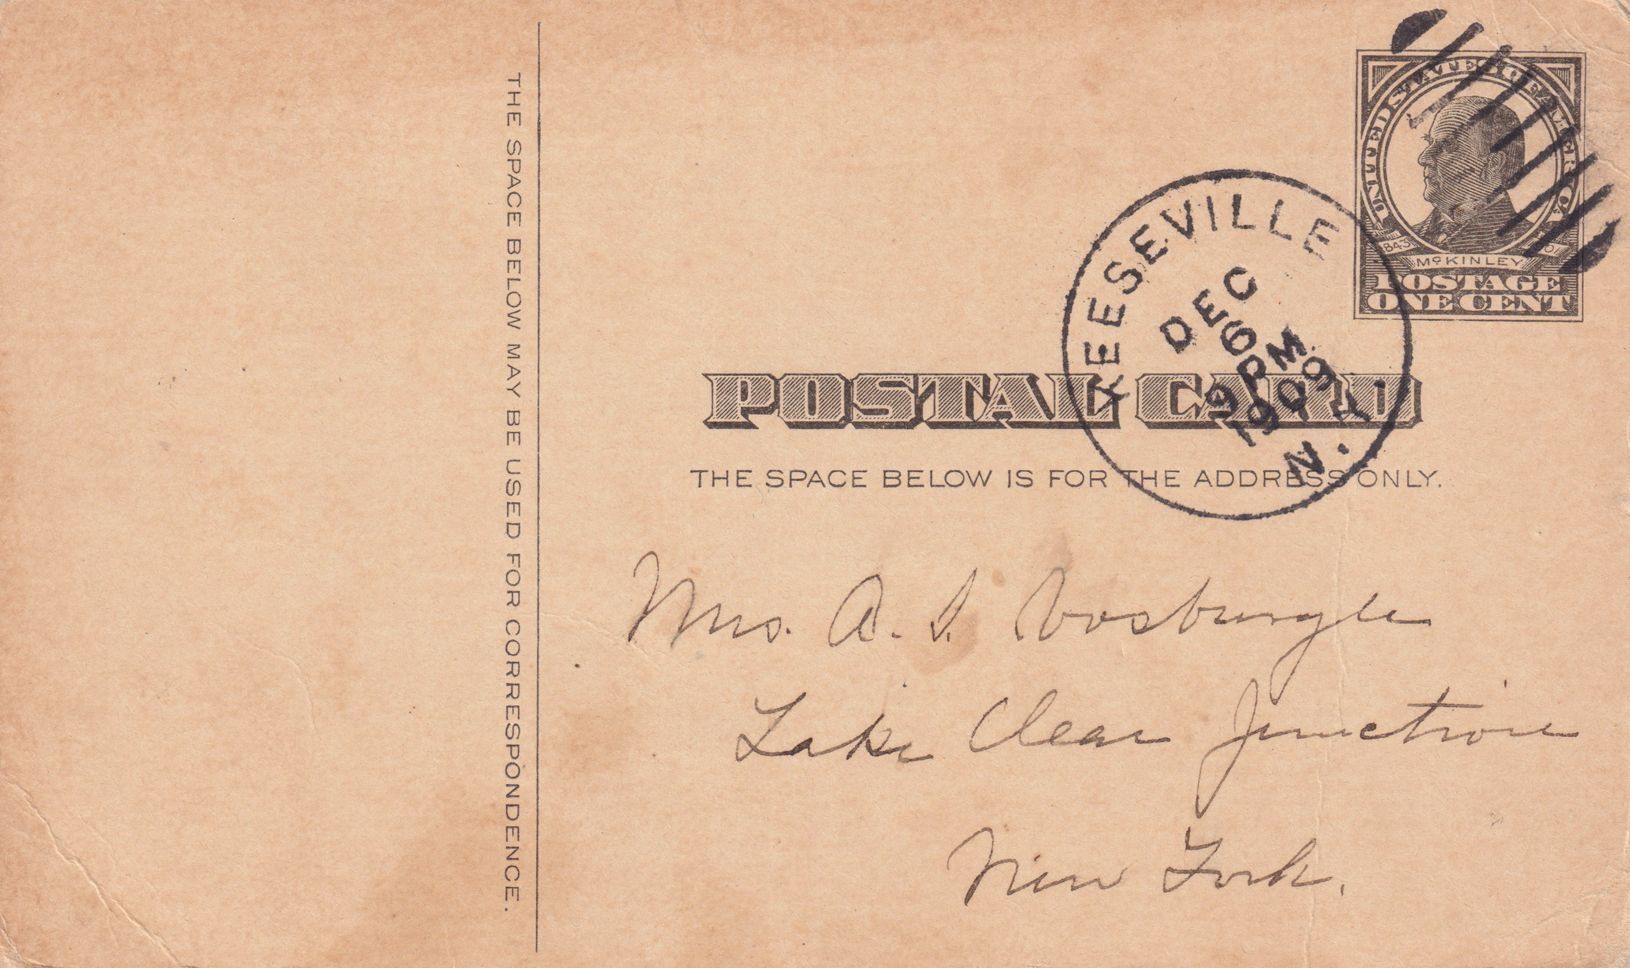 THE SPACE BELOW MAY BE USED FOR CORRESPONDENCE.
UNITED STATES OF AMERICA
1843 1901
McKINLEY
POSTAGE
ONE CENT
REESEVILLE
DEC
6
9 PM
1909
N.Y.
POSTAL CARD
THE SPACE BELOW IS FOR THE ADDRESS ONLY.
Mrs. A. S. Vosburgh
Lake Clear Junction
New York.